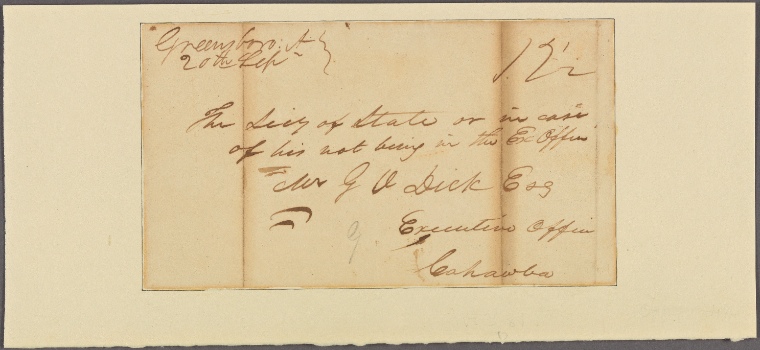 Greensboro. A
20th Sep
12½
The Secy of State or in case
of his not being in the Ex Office
Mr G V Dick Esq
Executive Office
Cahawba